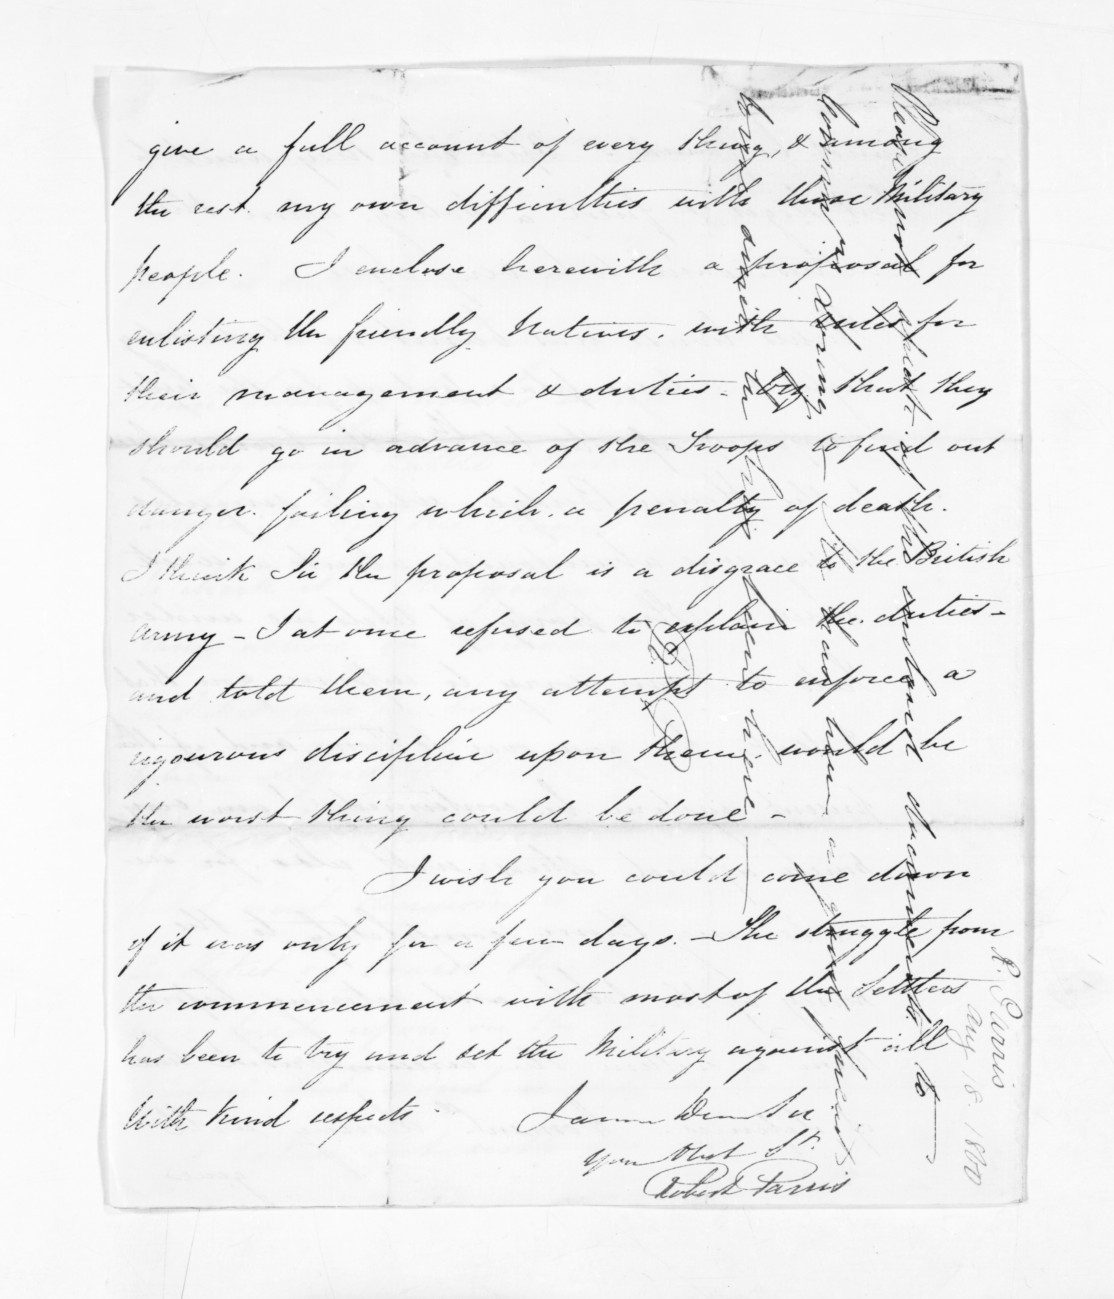 give a full account of every thing, & among
the rest. my own difficulties with those Military
people. I enclose herewith a proposal for
enlisting the friendly Natives. with rules for
their management & duties - that they
should go in advance of the Troops to find out
danger. failing which. a penalty of death.
I think Sir the proposal is a disgrace to the British
army - I at once refused to explain the duties -
and told them, any attempt to enforce a
rigourous discipline upon them would be
the worst thing could be done -
I wish you could come down
if it was only for a few days. - The struggle from
the commencement with most of the Settlers
has been to try and set the Military against all
With kind respects. I am Dear Sir
your Obet St.
Robert Parris
Please not the duties to
doing - to the
written here
R. Parris
Aug 18. 1860